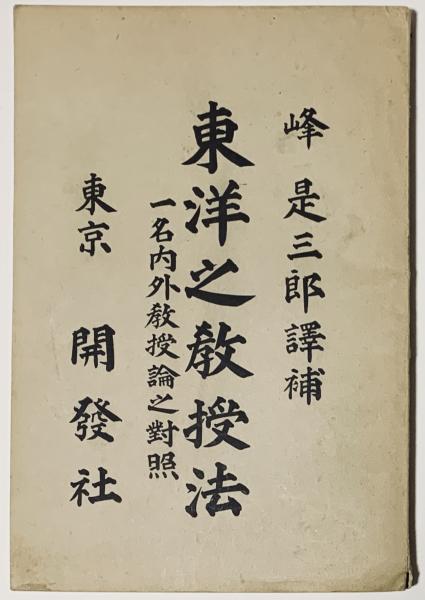 峰是三郎譯補
東洋之教授法
一名内外教授論之對照
東京 開發社